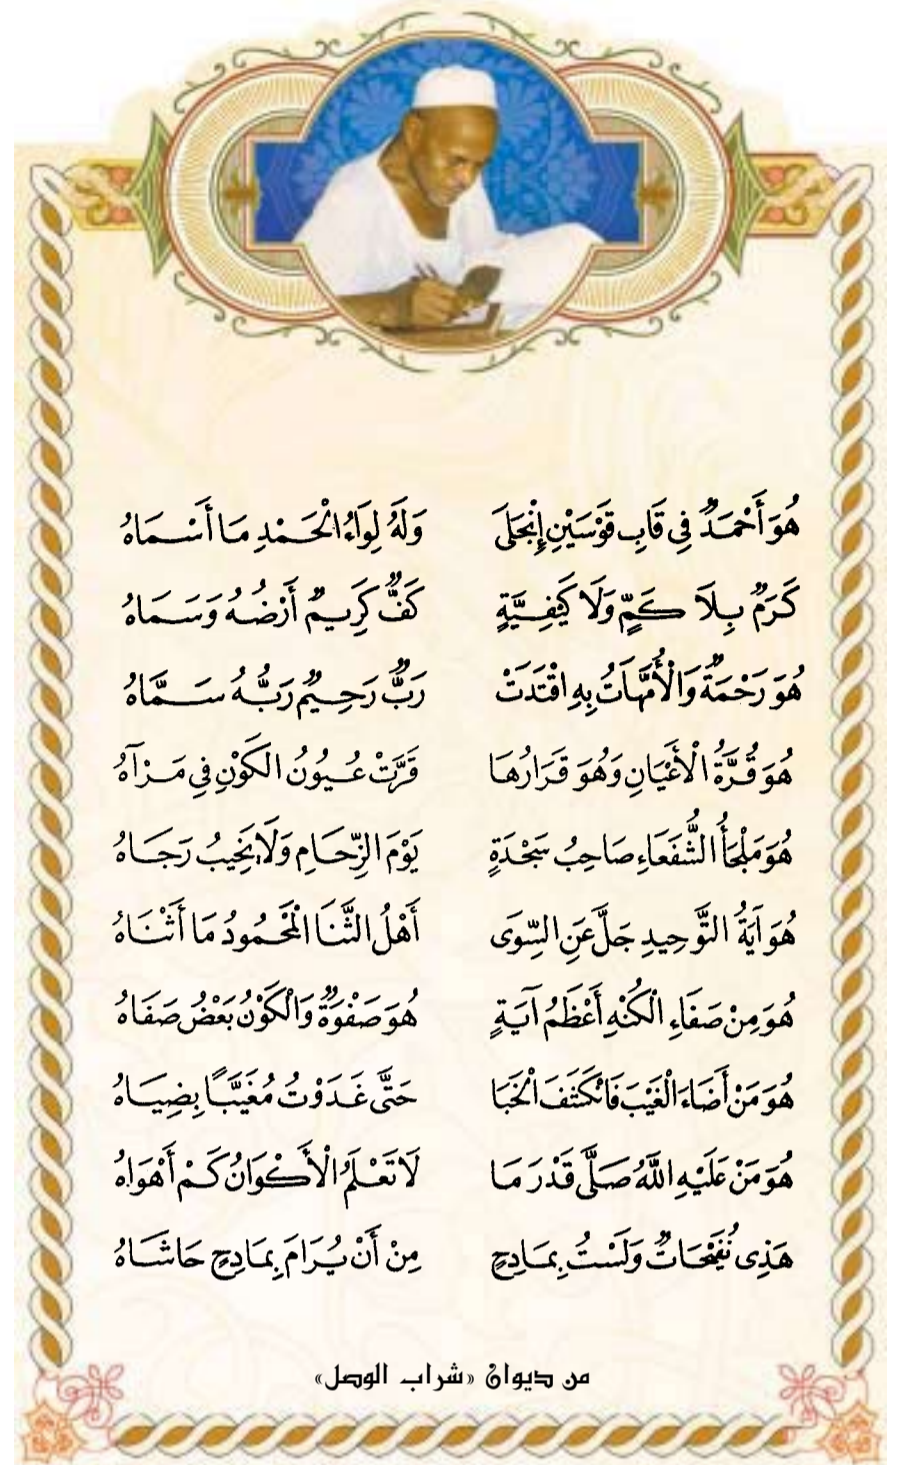 هُوَ أَحْمَدٌ فِي قَابِ قَوْسَيْنِ إِنْجَلَى وَلَهُ لِوَاءُ الْحَمْدِ مَا أَسْمَاهُ
كَرَمٌ بِلاَ كَمٍّ وَلَا كَيْفِيَّةٍ كَفٌّ كَرِيمٌ أَرْضُهُ وَسَمَاهُ
هُوَ رَحْمَةٌ وَالْأُمَّهَاتُ بِهِ اقْتَدَتْ رَبٌّ رَحِيمٌ رَبُّهُ سَمَّاهُ
هُوَ قُرَّةُ الْأَعْيَانِ وَهُوَ قَرَارُهَا قَرَّتْ عُيُونُ الكَوْنِ فِي مَرْآهُ
هُوَ مَلْجَأُ الشُّفَعَاءِ صَاحِبُ سَجْدَةٍ يَوْمَ الزِّحَامِ وَلَا يَخِيبُ رَجَاهُ
هُوَ آيَةُ التَّوْحِيدِ جَلَّ عَنِ السِّوَى أَهْلُ الثَّنَا الْمَحْمُودُ مَا أَثْنَاهُ
هُوَ مِنْ صَفَاءِ الْكُنْهِ أَعْظَمُ آيَةٍ هُوَ صَفْوَةٌ وَالْكَوْنُ بَعْضُ صَفَاهُ
هُوَ مَنْ أَضَاءَ الْغَيْبَ فَانْكَتَفَ الْخَبَا حَتَّى غَدَوْتُ مُغَيَّبًا بِضِيَاهُ
هُوَ مَنْ عَلَيْهِ اللَّهُ صَلَّى قَدْرَ مَا لَا تَعْلَمُ الْأَكْوَانُ كَمْ أَهْوَاهُ
هَذِى نُفَيْحَاتٌ وَلَسْتُ بِمَادِحٍ مِنْ أَنْ يُرَامَ بِمَادِحٍ حَاشَاهُ
من ديوان «شراب الوصل»